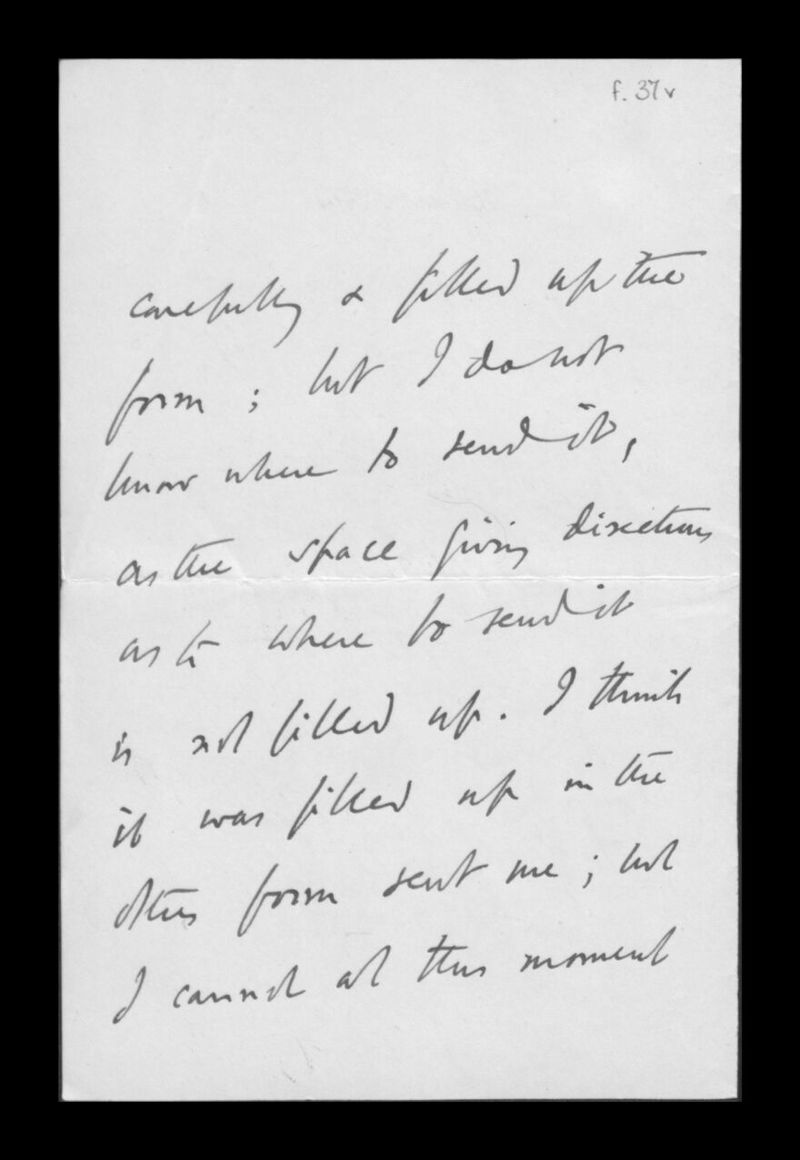 f. 37v
carefully & filled up the
form ; but I do not
know where to send it,
as the space giving directions
as to where to send it
is not filled up. I think
it was filled up in the
other form sent me ; but
I cannot at this moment